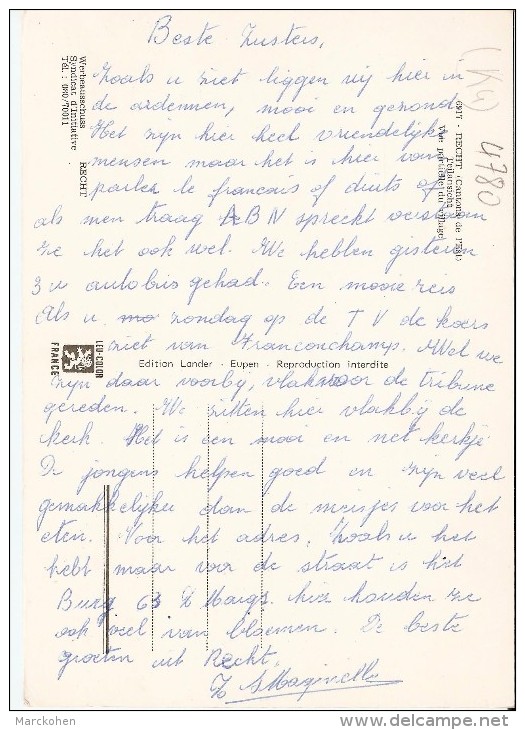 Beste Zusters,
Zoals u ziet liggen wij hier in
de ardennen, mooi en gezond.
Het zijn hier heel vriendelijke
mensen maar het is hier van
parlez le francais of duits of
als men traag ABN spreekt verstaan
ze het ook wel. We hebben gisteren
3 u autobus gehad. Een mooie reis
Als u zondag op de T V de koers
ziet van Franconchamp. Wel we
zijn daar voorbij, vlak voor de tribune
gereden. We zitten hier vlakbij de
kerk. Het is een mooi en net kerkje
De jongens helpen goed en zijn veel
gemakkelijker dan de meisjes voor het
eten. Voor het adres. Zoals u het
hebt maar voor de straat is het
Burg 63 Z Marg. hier houden ze
ook veel van bloemen. De beste
groeten uit Recht.
Z
(K4) 4780
6917 - RECHT - Cantons de l'Est
Teilansicht
Vue partielle du village
Werbeausschuss RECHT
Syndicat d'Initiative
Tél.: 080/70011
LEU-COLOR
FRANCE
Edition Lander - Eupen - Reproduction interdite
Marckohen
delcampe.net